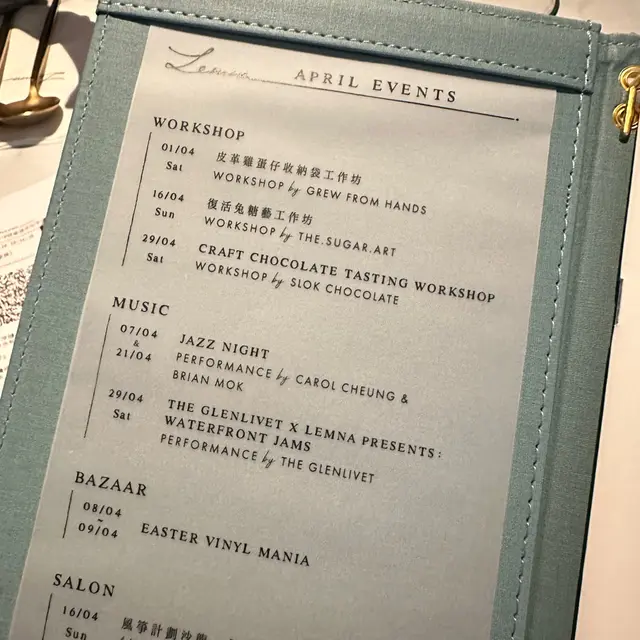 Lemna
APRIL EVENTS
WORKSHOP
01/04
Sat
皮革雞蛋仔收納袋工作坊
WORKSHOP by GREW FROM HANDS
16/04
Sun
復活兔糖藝工作坊
WORKSHOP by THE.SUGAR.ART
29/04
Sat
CRAFT CHOCOLATE TASTING WORKSHOP
WORKSHOP by SLOK CHOCOLATE
MUSIC
07/04
&
21/04
JAZZ NIGHT
PERFORMANCE by CAROL CHEUNG &
BRIAN MOK
29/04
Sat
THE GLENLIVET X LEMNA PRESENTS:
WATERFRONT JAMS
PERFORMANCE by THE GLENLIVET
BAZAAR
08/04
~
09/04
EASTER VINYL MANIA
SALON
16/04
Sun
風箏計劃沙龍